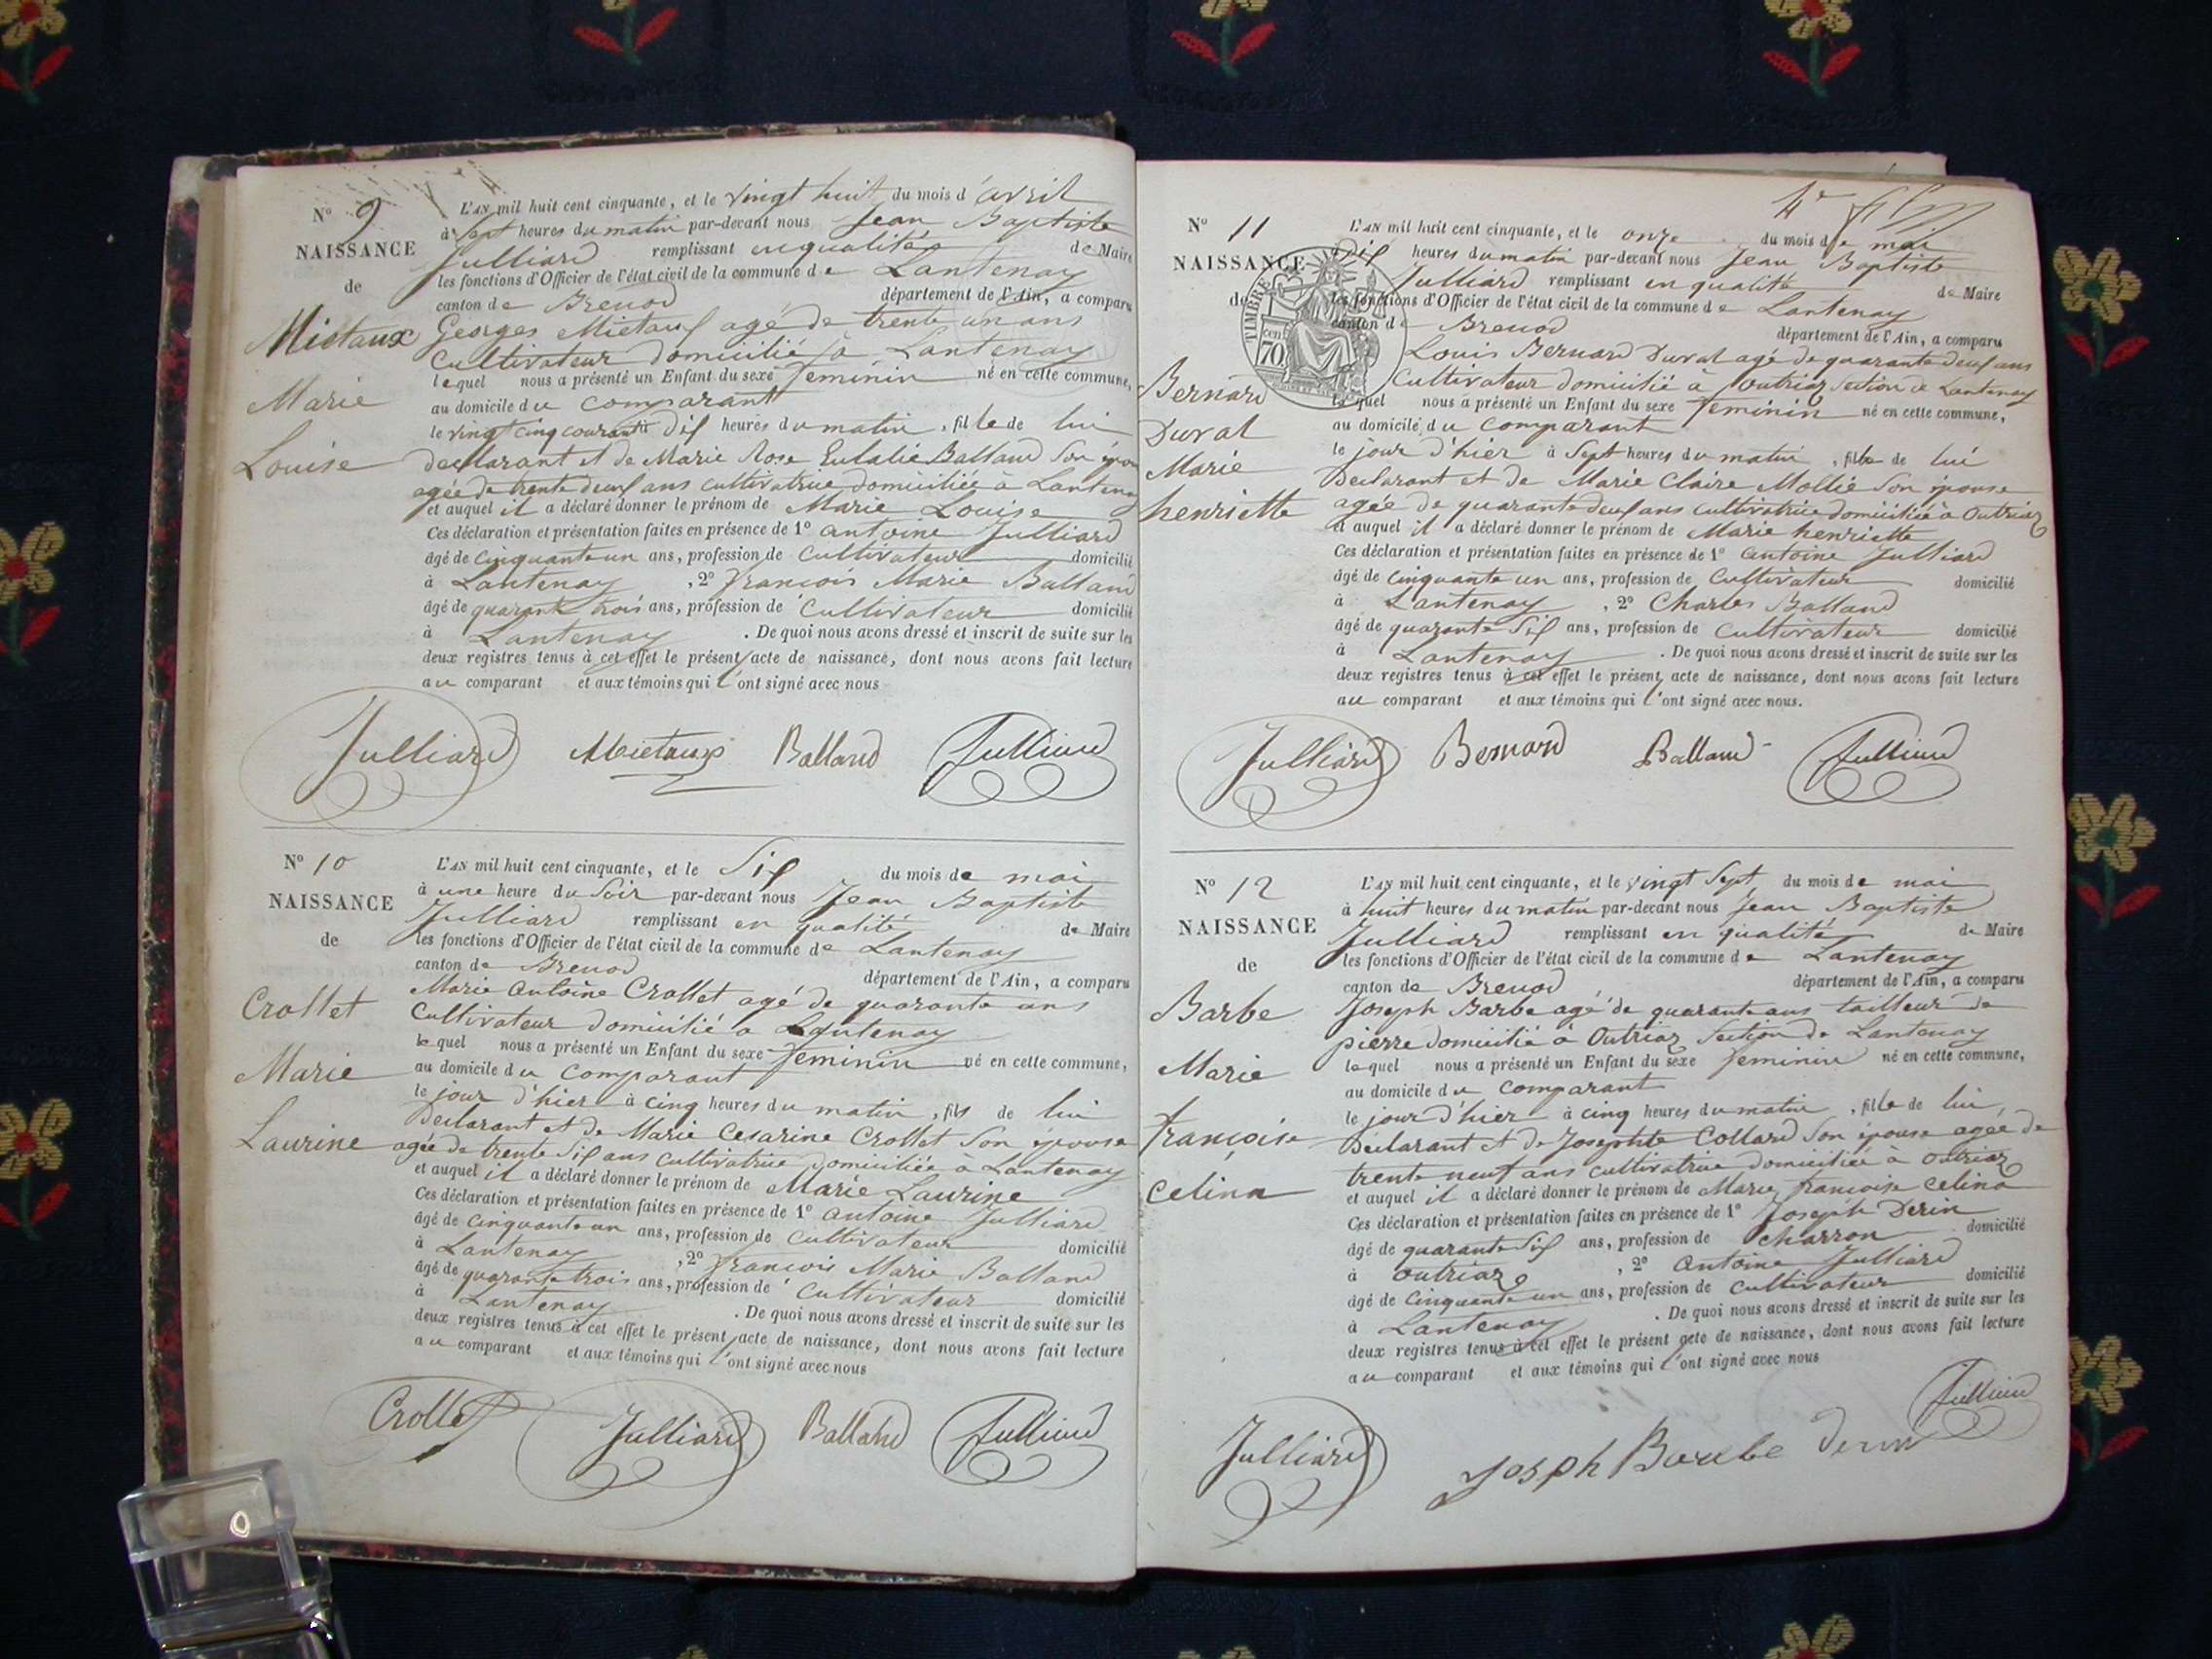 N° 9
NAISSANCE
de
Mietaux
Marie
Louise
L'AN mil huit cent cinquante, et le vingt huit du mois d'avril
à Sept heures du matin par-devant nous Jean Baptiste
Julliard remplissant en qualité de Maire
les fonctions d'Officier de l'état civil de la commune de Lantenay
canton de Brenod département de l'Ain, a comparu
Georges Mietaux agé de trente un ans
Cultivateur domicilié à Lantenay
lequel nous a présenté un Enfant du sexe feminin né en cette commune,
au domicile du comparant
le vingt cinq courant à dix heures du matin, fille de lui
declarant et de Marie Rose Eulalie Balland Son épouse
agée de trente deux ans cultivatrice domiciliée a Lantenay
et auquel il a déclaré donner le prénom de Marie Louise
Ces déclaration et présentation faites en présence de 1° antoine Julliard
âgé de cinquante un ans, profession de Cultivateur domicilié
à Lantenay, 2° francois Marie Balland
âgé de quarante trois ans, profession de Cultivateur domicilié
à Lantenay. De quoi nous avons dressé et inscrit de suite sur les
deux registres tenus à cet effet le présent acte de naissance, dont nous avons fait lecture
au comparant et aux témoins qui l'ont signé avec nous
Julliard Mietaux Balland Julliard
N° 10
NAISSANCE
de
Crollet
Marie
Laurine
L'AN mil huit cent cinquante, et le Six du mois de mai
à une heure du Soir par-devant nous Jean Baptiste
Julliard remplissant en qualité de Maire
les fonctions d'Officier de l'état civil de la commune de Lantenay
canton de Brenod département de l'Ain, a comparu
Marie antoine Crollet agé de quarante ans
Cultivateur domicilié a Lantenay
lequel nous a présenté un Enfant du sexe feminin né en cette commune,
au domicile du comparant
le jour d'hier à cinq heures du matin, fils de lui
Declarant et de Marie Cesarine Crollet Son épouse
agée de trente Six ans cultivatrice domiciliée à Lantenay
et auquel il a déclaré donner le prénom de Marie Laurine
Ces déclaration et présentation faites en présence de 1° antoine Julliard
âgé de cinquante un ans, profession de Cultivateur domicilié
à Lantenay, 2° francois Marie Balland
âgé de quarante trois ans, profession de Cultivateur domicilié
à Lantenay. De quoi nous avons dressé et inscrit de suite sur les
deux registres tenus à cet effet le présent acte de naissance, dont nous avons fait lecture
au comparant et aux témoins qui l'ont signé avec nous
Crollet Julliard Balland Julliard
N° 11
NAISSANCE
de
TIMBRE
cen
70
Bernard
Duval
Marie
henriette
L'AN mil huit cent cinquante, et le onze du mois de mai
Dix heures du matin par-devant nous Jean Baptiste
Julliard remplissant en qualité de Maire
les fonctions d'Officier de l'état civil de la commune de Lantenay
canton de Brenod département de l'Ain, a comparu
Louis Bernard Duval agé de quarante deux ans
Cultivateur domicilié à Outriaz Section de Lantenay
lequel nous a présenté un Enfant du sexe feminin né en cette commune,
au domicile du comparant
le jour d'hier à Sept heures du matin, fille de lui
Declarant et de Marie Claire Mollie Son épouse
agée de quarante deux ans cultivatrice domiciliée à Outriaz
et auquel il a déclaré donner le prénom de Marie henriette
Ces déclaration et présentation faites en présence de 1° antoine Julliard
âgé de cinquante un ans, profession de Cultivateur domicilié
à Lantenay, 2° Charles Balland
âgé de quarante Six ans, profession de Cultivateur domicilié
à Lantenay. De quoi nous avons dressé et inscrit de suite sur les
deux registres tenus à cet effet le présent acte de naissance, dont nous avons fait lecture
au comparant et aux témoins qui l'ont signé avec nous.
Julliard Bernard Balland Julliard
N° 12
NAISSANCE
de
Barbe
Marie
françoise
celina
L'AN mil huit cent cinquante, et le vingt Sept du mois de mai
à huit heures du matin par-devant nous Jean Baptiste
Julliard remplissant en qualité de Maire
les fonctions d'Officier de l'état civil de la commune de Lantenay
canton de Brenod département de l'Ain, a comparu
Joseph Barbe agé de quarante ans tailleur de
pierre domicilié à Outriaz Section de Lantenay
lequel nous a présenté un Enfant du sexe feminin né en cette commune,
au domicile du comparant
le jour d'hier à cinq heures du matin, fille de lui
Declarant et de Josephte Collard Son épouse agée de
trente neuf ans cultivatrice domiciliée à Outriaz
et auquel il a déclaré donner le prénom de Marie françoise celina
Ces déclaration et présentation faites en présence de 1° Joseph Derin
âgé de quarante Six ans, profession de charron domicilié
à outriaz, 2° antoine Julliard
âgé de cinquante un ans, profession de cultivateur domicilié
à Lantenay. De quoi nous avons dressé et inscrit de suite sur les
deux registres tenus à cet effet le présent acte de naissance, dont nous avons fait lecture
au comparant et aux témoins qui l'ont signé avec nous
Julliard Joseph Barbe Derin Julliard